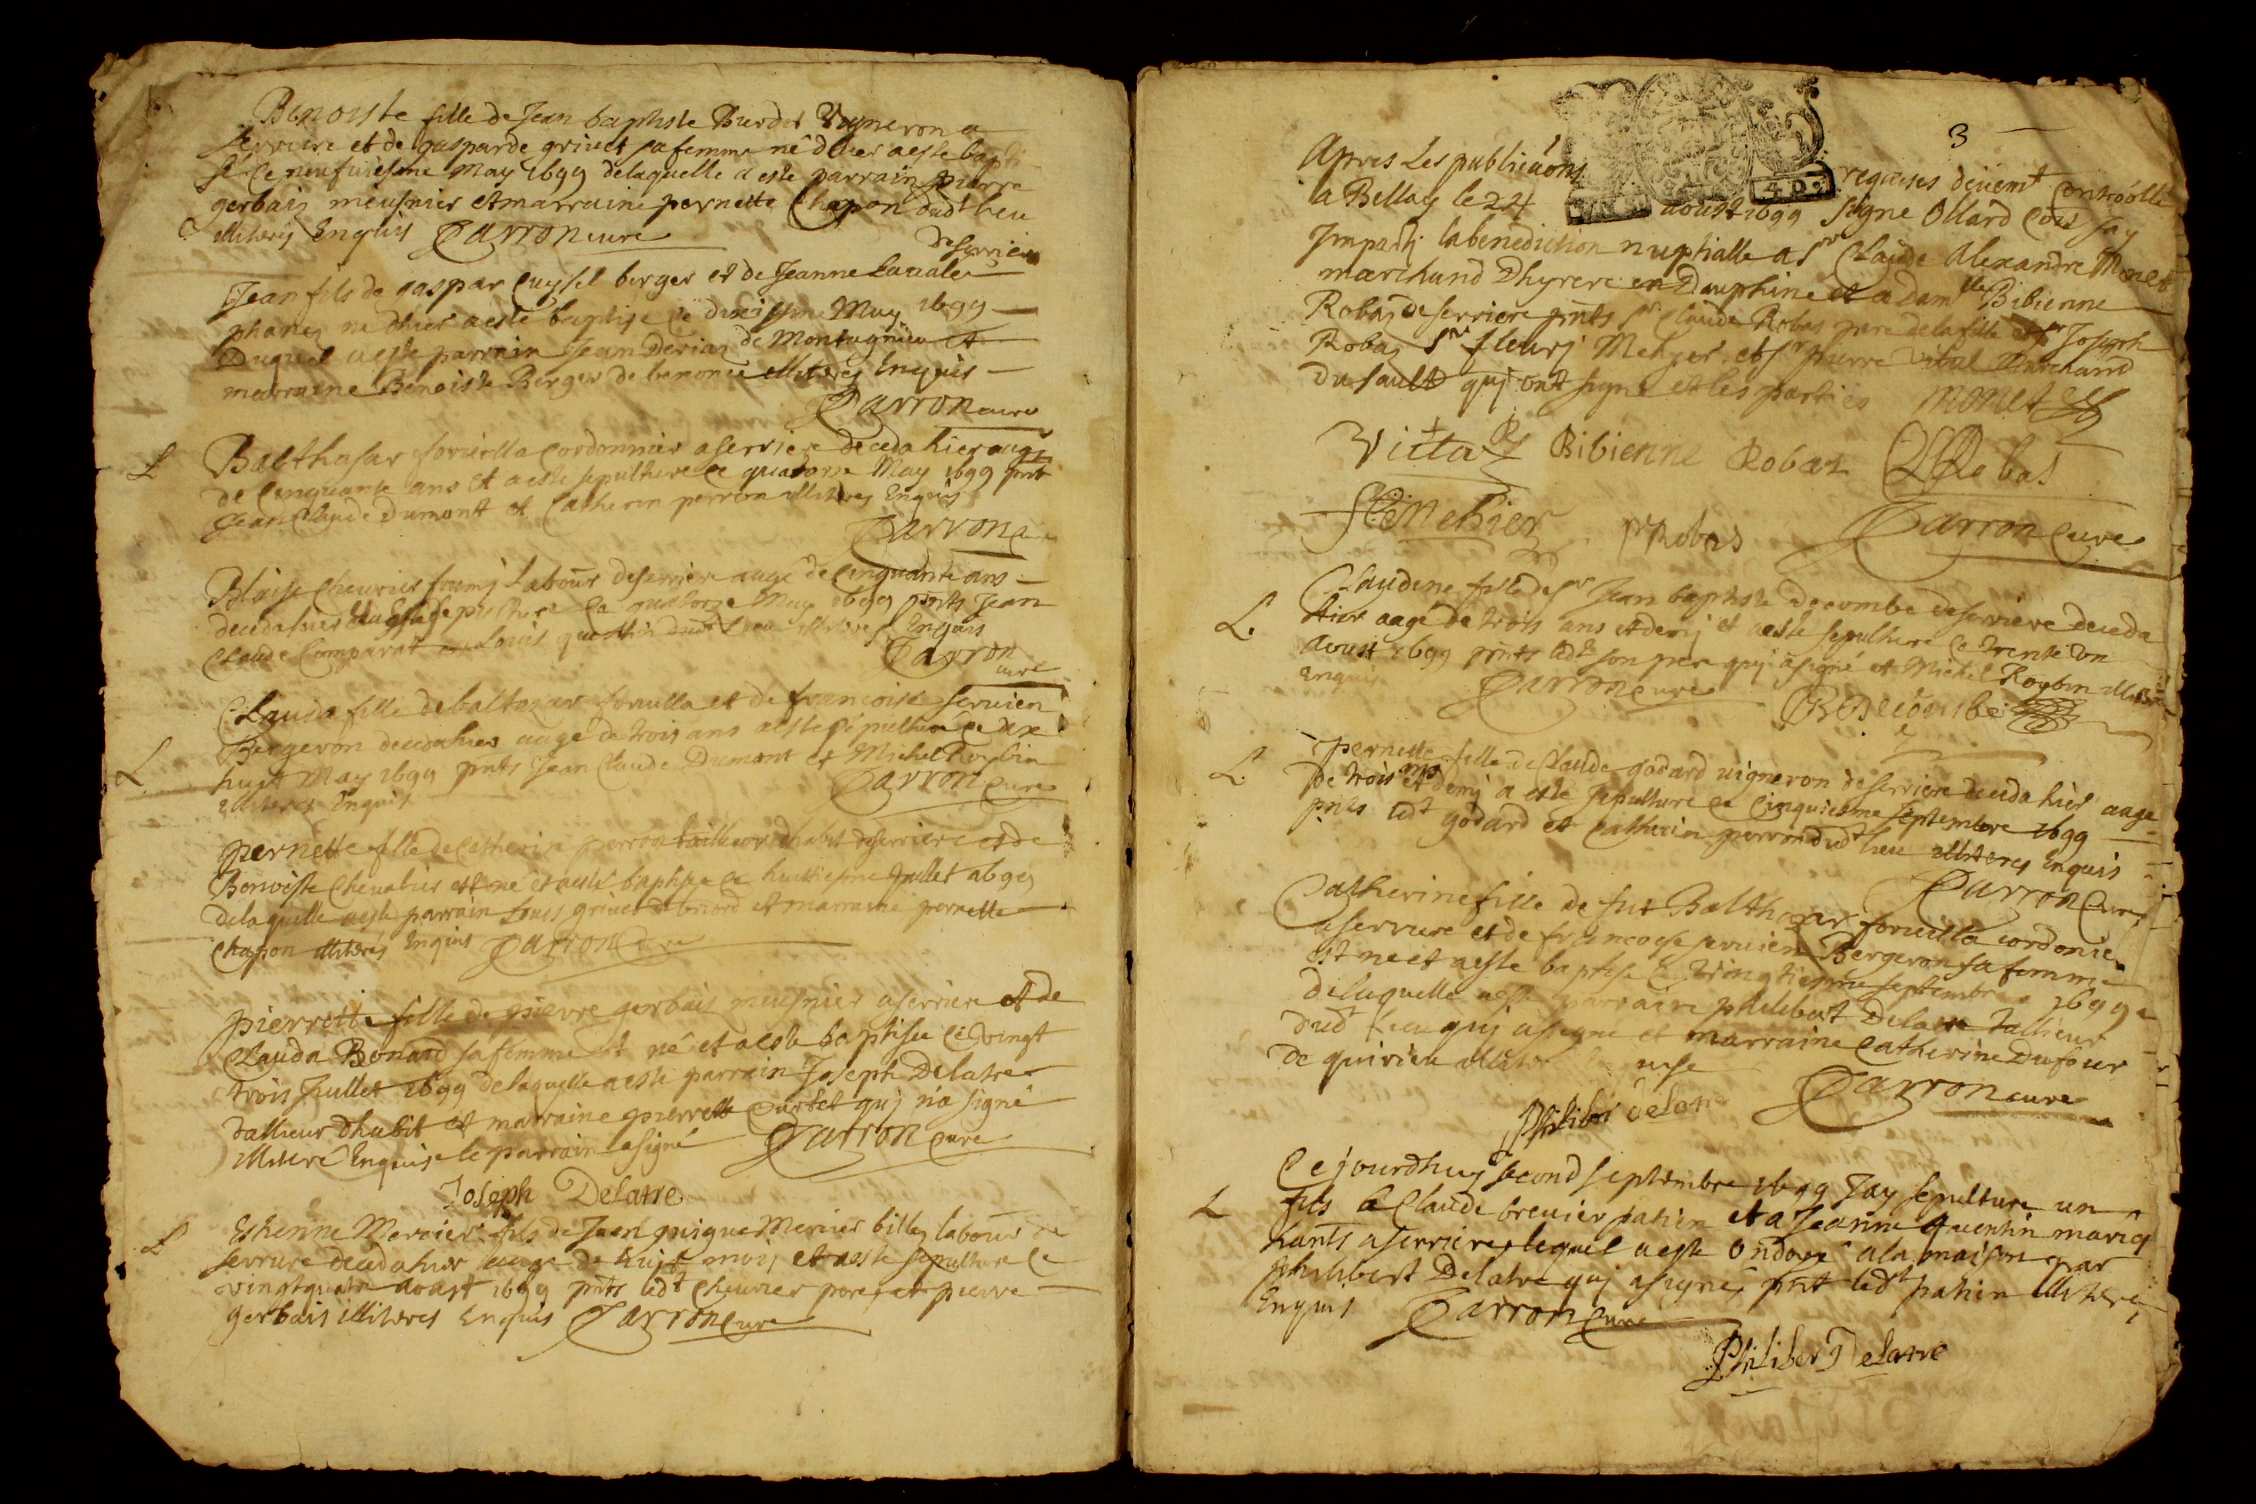 Benoiste fille de Jean baptiste Burdet Vigneron a
serriere et de gasparde grivet sa femme né dhier a este bapti
sé ce neufuiesme May 1699 delaquelle a este parrain pierre
gerbais meusnier et marraine pernette Chapon dudt lieu
illiteres Enquis Parron cure
de serriere
Jean fils de gaspar Cuysel berger et de Jeanne
né dhier a este baptise ce May 1699
Duquel a este parrain Jean Derias de Montagnieu et
marraine Benoiste Berger de illiteres Enquis
Parron cure
L Balthasar foruilla Cordonnier a serriere deceda hier aagé
de Cinquante ans et a este sepulture ce quatorze May 1699 pnt
Jean Claude Dumont et Catherin perron illiteres Enquis
Parron Cure
Blaise Cheurier Labour de serriere aagé de Cinquante ans
deceda hier a este sepulture ce quatorze May 1699 pnts Jean
Claude Comparat et Louis quentin dudt Lieu illiteres Enquis
Parron
cure
Clauda fille de baltazar foruilla et de francoise seruien
Bergeron deceda hier aagé de trois ans a este sepulturé ce dix
L huit May 1699 pnts Jean Claude Dumont et Michel Roybin
illiteres Enquis Parron Cure
pernette fille de Catherin perron tailleur dhabit de serriere et de
Benoiste Chevalier est né et a esté baptisee ce huittiesme Juillet 1699
delaquelle a este parrain Louis grivet de briord et marraine pernette
Chapon illiterés Enquis Parron Cure
pierrette fille de pierre gerbais meusnier a serriere et de
Clauda Bonard sa femme est né et a este baptisee ce vingt
trois Juillet 1699 delaquelle a este parrain Joseph Delatre
tallieur dhabit et marraine pierrette Curtet quj na signé
illiteré Enquise le parrain a signé Parron Cure
Joseph Delatre
L Estienne Mercier fils de Jean guigue Mercier billes labour de
serriere deceda hier aage de huit mois et a este sepulture ce
vingtquatre aoust 1699 pnts ledt Cheurier pere et pierre
gerbais illiteres Enquis Parron Cure
3
40.
Apres Les publicaons requises deuemt Controolle
a Bellay le 24 aoust 1699 signe Ollard Cois Jay
Jmparty la benediction nuptialle a Sr Claude Alexandre Monet
marchand Dhyrere en Dauphine et a damlle Bibienne
Robas de serriere pnts Sr Claude Robas pere de la fille et Sr Joseph
Robas Sr fleurj et Sr pierre vital Marchand
Du sault quj ont signe et les parties monet
Victal Bibienne Robas Robas
Robas Parron Cure
Claudine fille de Sr Jean baptiste Decombe de serriere deceda
L. hier aagé de trois ans et demj et a este sepulture ce trente un
Aoust 1699 pnts ledt son pere quj a signé et Michel Roybin illiteré
Enquis Parron Cure
Decombe
pernette fille de Claude godard uigneron de serriere deceda hier aage
L. de trois ans et demj a este sepulture ce Cinquiesme septembre 1699
pnts ledt godard et Catherin perron dudt lieu illiteres Enquis
Parron Cure
Catherine fille de fut Balthazar foruilla cordonier
a serriere et de francoese seruien Bergeron sa femme
est né et a este baptise ce vingtiesme septembre 1699
delaquelle a este parraire philibert Delatre Tallieur
dudt Lieu quj a signe et marraine Catherine Dufour
de quirieu
Parron cure
Philiber delatre
Cejourdhuy second septembre 1699 Jay sepulture un
L fils a Claude breuier patien et a Jeanne quentin mariés
hants a serriere lequel a este Ondoyé a la maison par
philibert Delatre quj a signe pnt ledt patien illiteré
Enquis Parron Cure
Philiber Delatre